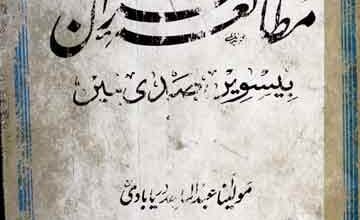 مطالعہ قرآن
بیسویں صدی میں
مولٰینا عبدالماجد دریابادی